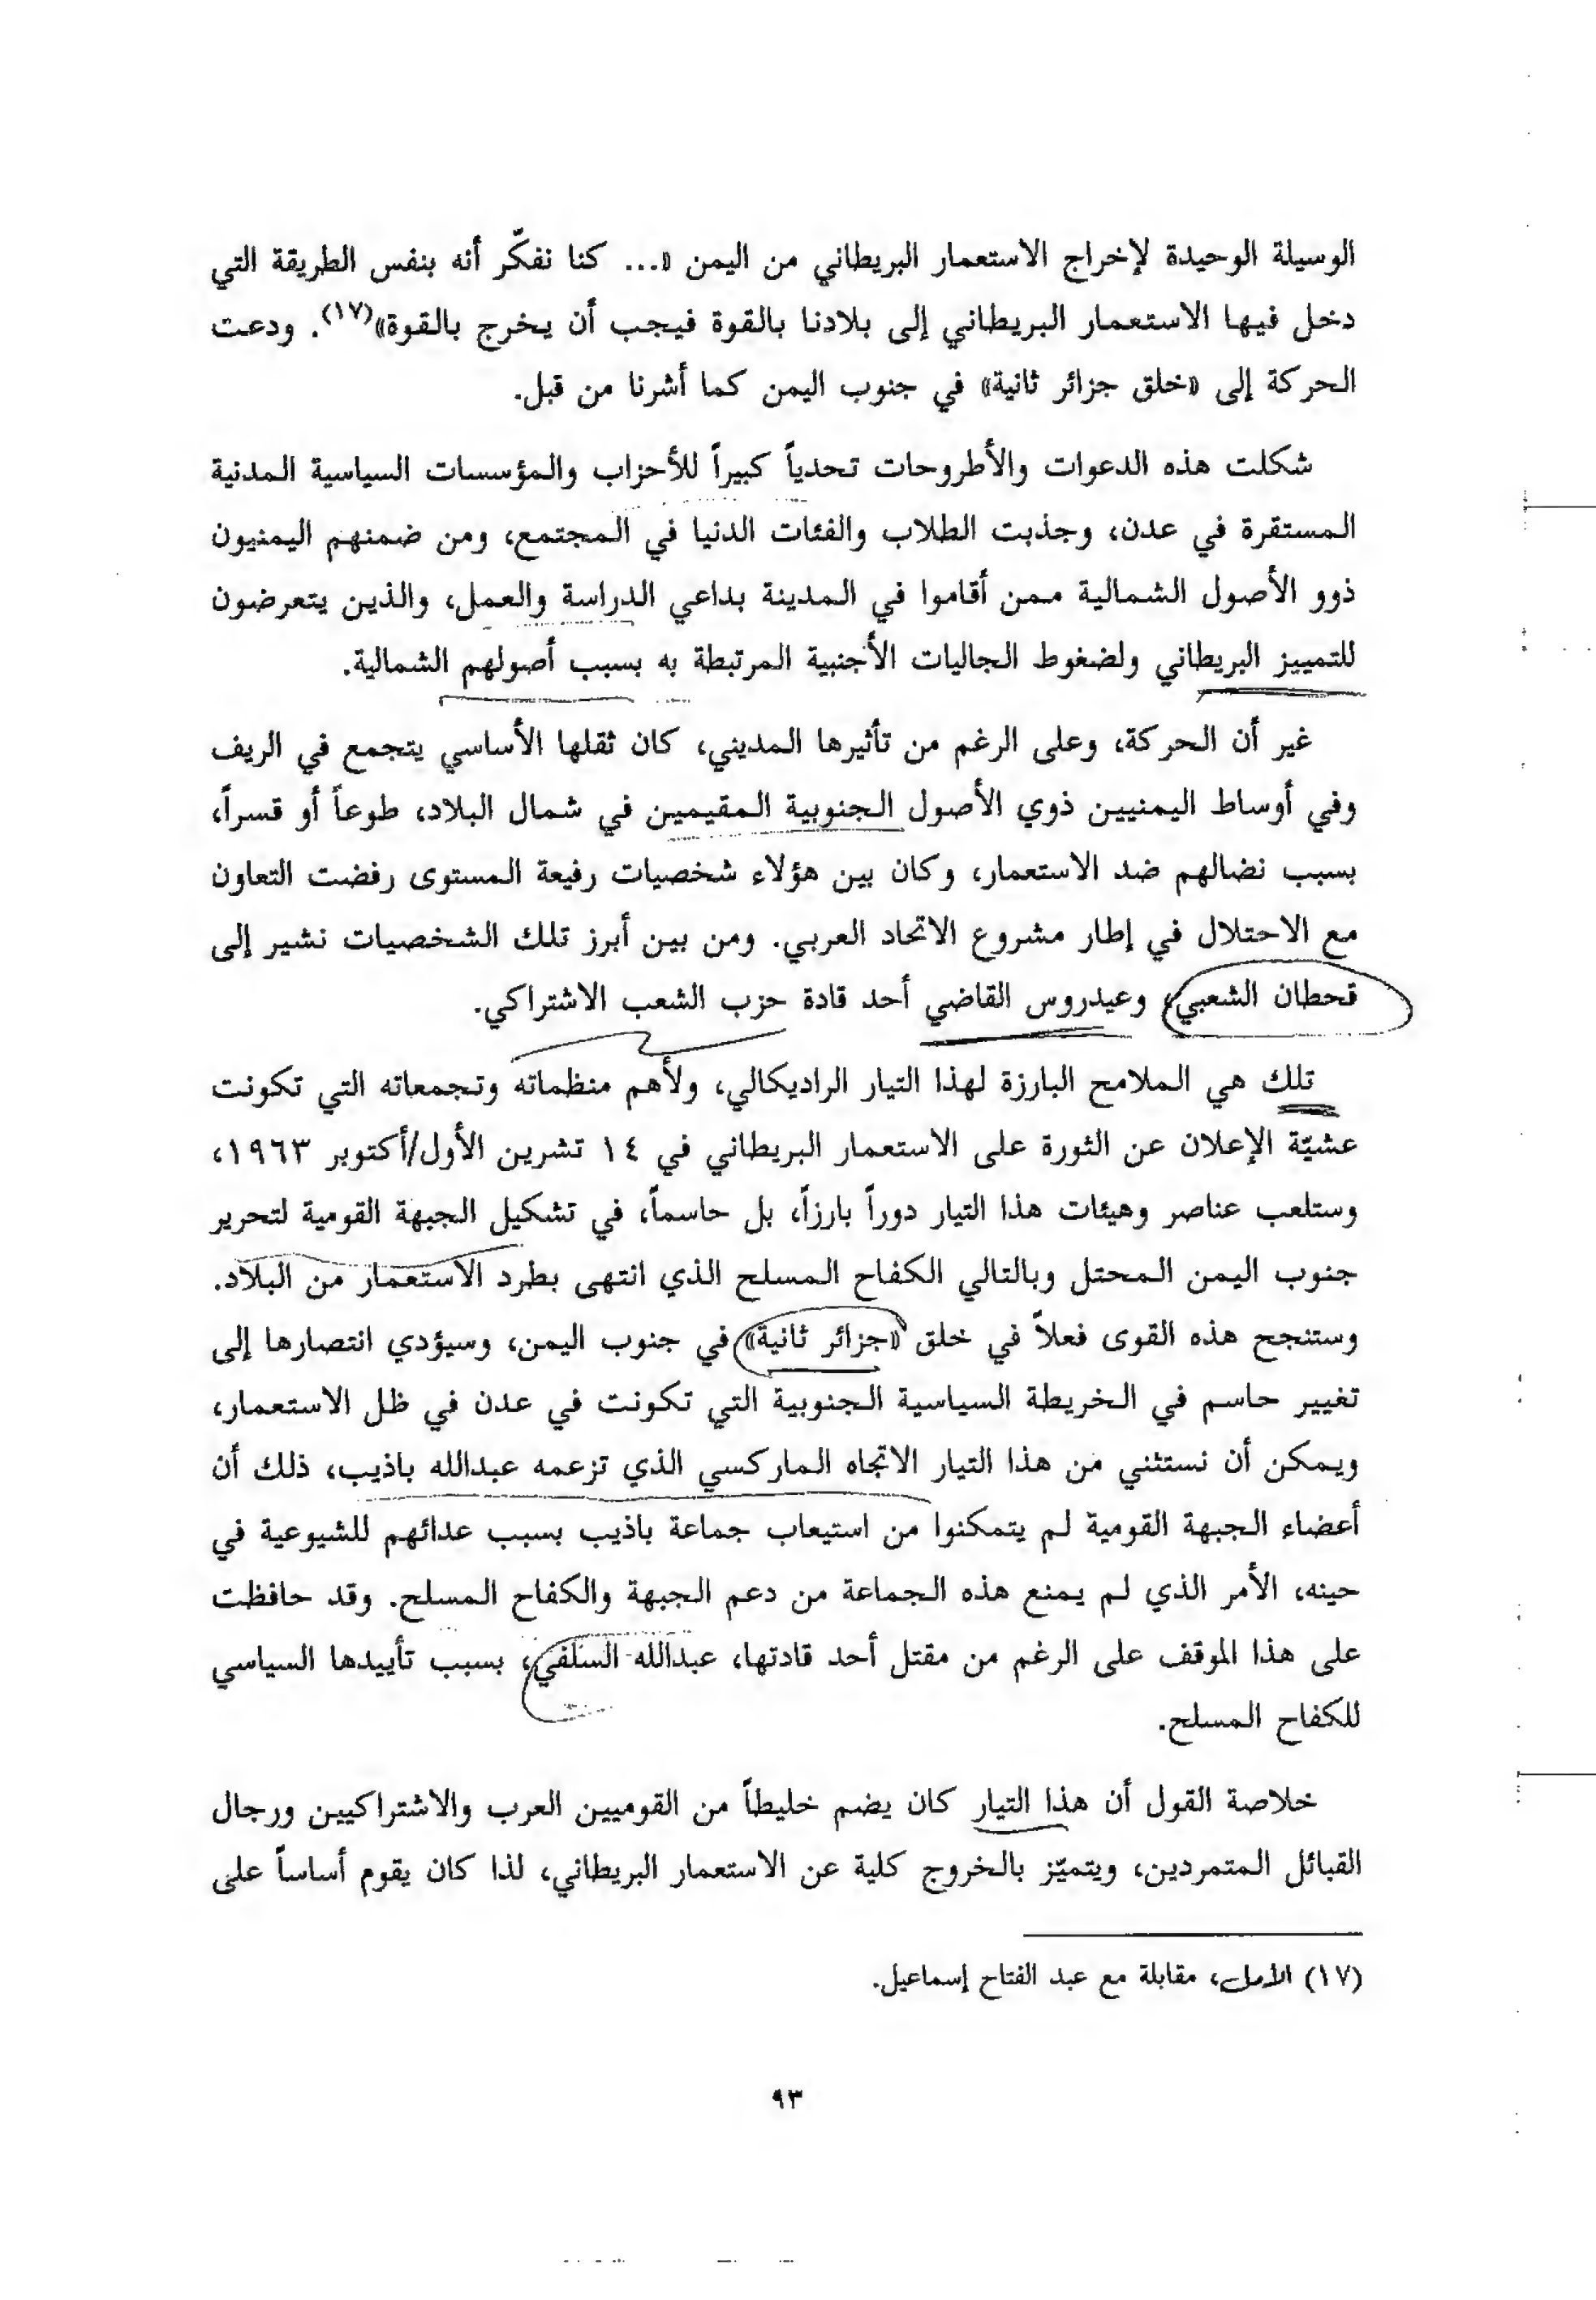 الوسيلة الوحيدة لإخراج الاستعمار البريطاني من اليمن «... كنا نفكّر أنه بنفس الطريقة التي
دخل فيها الاستعمار البريطاني إلى بلادنا بالقوة فيجب أن يخرج بالقوة»(١٧). ودعت
الحركة إلى «خلق جزائر ثانية» في جنوب اليمن كما أشرنا من قبل.
شكلت هذه الدعوات والأطروحات تحدياً كبيراً للأحزاب والمؤسسات السياسية المدنية
المستقرة في عدن، وجذبت الطلاب والفئات الدنيا في المجتمع، ومن ضمنهم اليمنيون
ذوو الأصول الشمالية ممن أقاموا في المدينة بداعي الدراسة والعمل، والذين يتعرضون
للتمييز البريطاني ولضغوط الجاليات الأجنبية المرتبطة به بسبب أصولهم الشمالية.
غير أن الحركة، وعلى الرغم من تأثيرها المديني، كان ثقلها الأساسي يتجمع في الريف
وفي أوساط اليمنيين ذوي الأصول الجنوبية المقيمين في شمال البلاد، طوعاً أو قسراً،
بسبب نضالهم ضد الاستعمار، وكان بين هؤلاء شخصيات رفيعة المستوى رفضت التعاون
مع الاحتلال في إطار مشروع الاتحاد العربي. ومن بين أبرز تلك الشخصيات نشير إلى
قحطان الشعبي، وعيدروس القاضي أحد قادة حزب الشعب الاشتراكي.
تلك هي الملامح البارزة لهذا التيار الراديكالي، ولأهم منظماته وتجمعاته التي تكونت
عشيّة الإعلان عن الثورة على الاستعمار البريطاني في ١٤ تشرين الأول/أكتوبر ١٩٦٣،
وستلعب عناصر وهيئات هذا التيار دوراً بارزاً، بل حاسماً، في تشكيل الجبهة القومية لتحرير
جنوب اليمن المحتل وبالتالي الكفاح المسلح الذي انتهى بطرد الاستعمار من البلاد.
وستنجح هذه القوى فعلاً في خلق «جزائر ثانية» في جنوب اليمن، وسيؤدي انتصارها إلى
تغيير حاسم في الخريطة السياسية الجنوبية التي تكونت في عدن في ظل الاستعمار،
ويمكن أن نستثني من هذا التيار الاتجاه الماركسي الذي تزعمه عبدالله باذيب، ذلك أن
أعضاء الجبهة القومية لم يتمكنوا من استيعاب جماعة باذيب بسبب عدائهم للشيوعية في
حينه، الأمر الذي لم يمنع هذه الجماعة من دعم الجبهة والكفاح المسلح. وقد حافظت
على هذا الموقف على الرغم من مقتل أحد قادتها، عبدالله السلفي، بسبب تأييدها السياسي
للكفاح المسلح.
خلاصة القول أن هذا التيار كان يضم خليطاً من القوميين العرب والاشتراكيين ورجال
القبائل المتمردين، ويتميّز بالخروج كلية عن الاستعمار البريطاني، لذا كان يقوم أساساً على
(١٧) الأمل، مقابلة مع عبد الفتاح إسماعيل.
٩٣